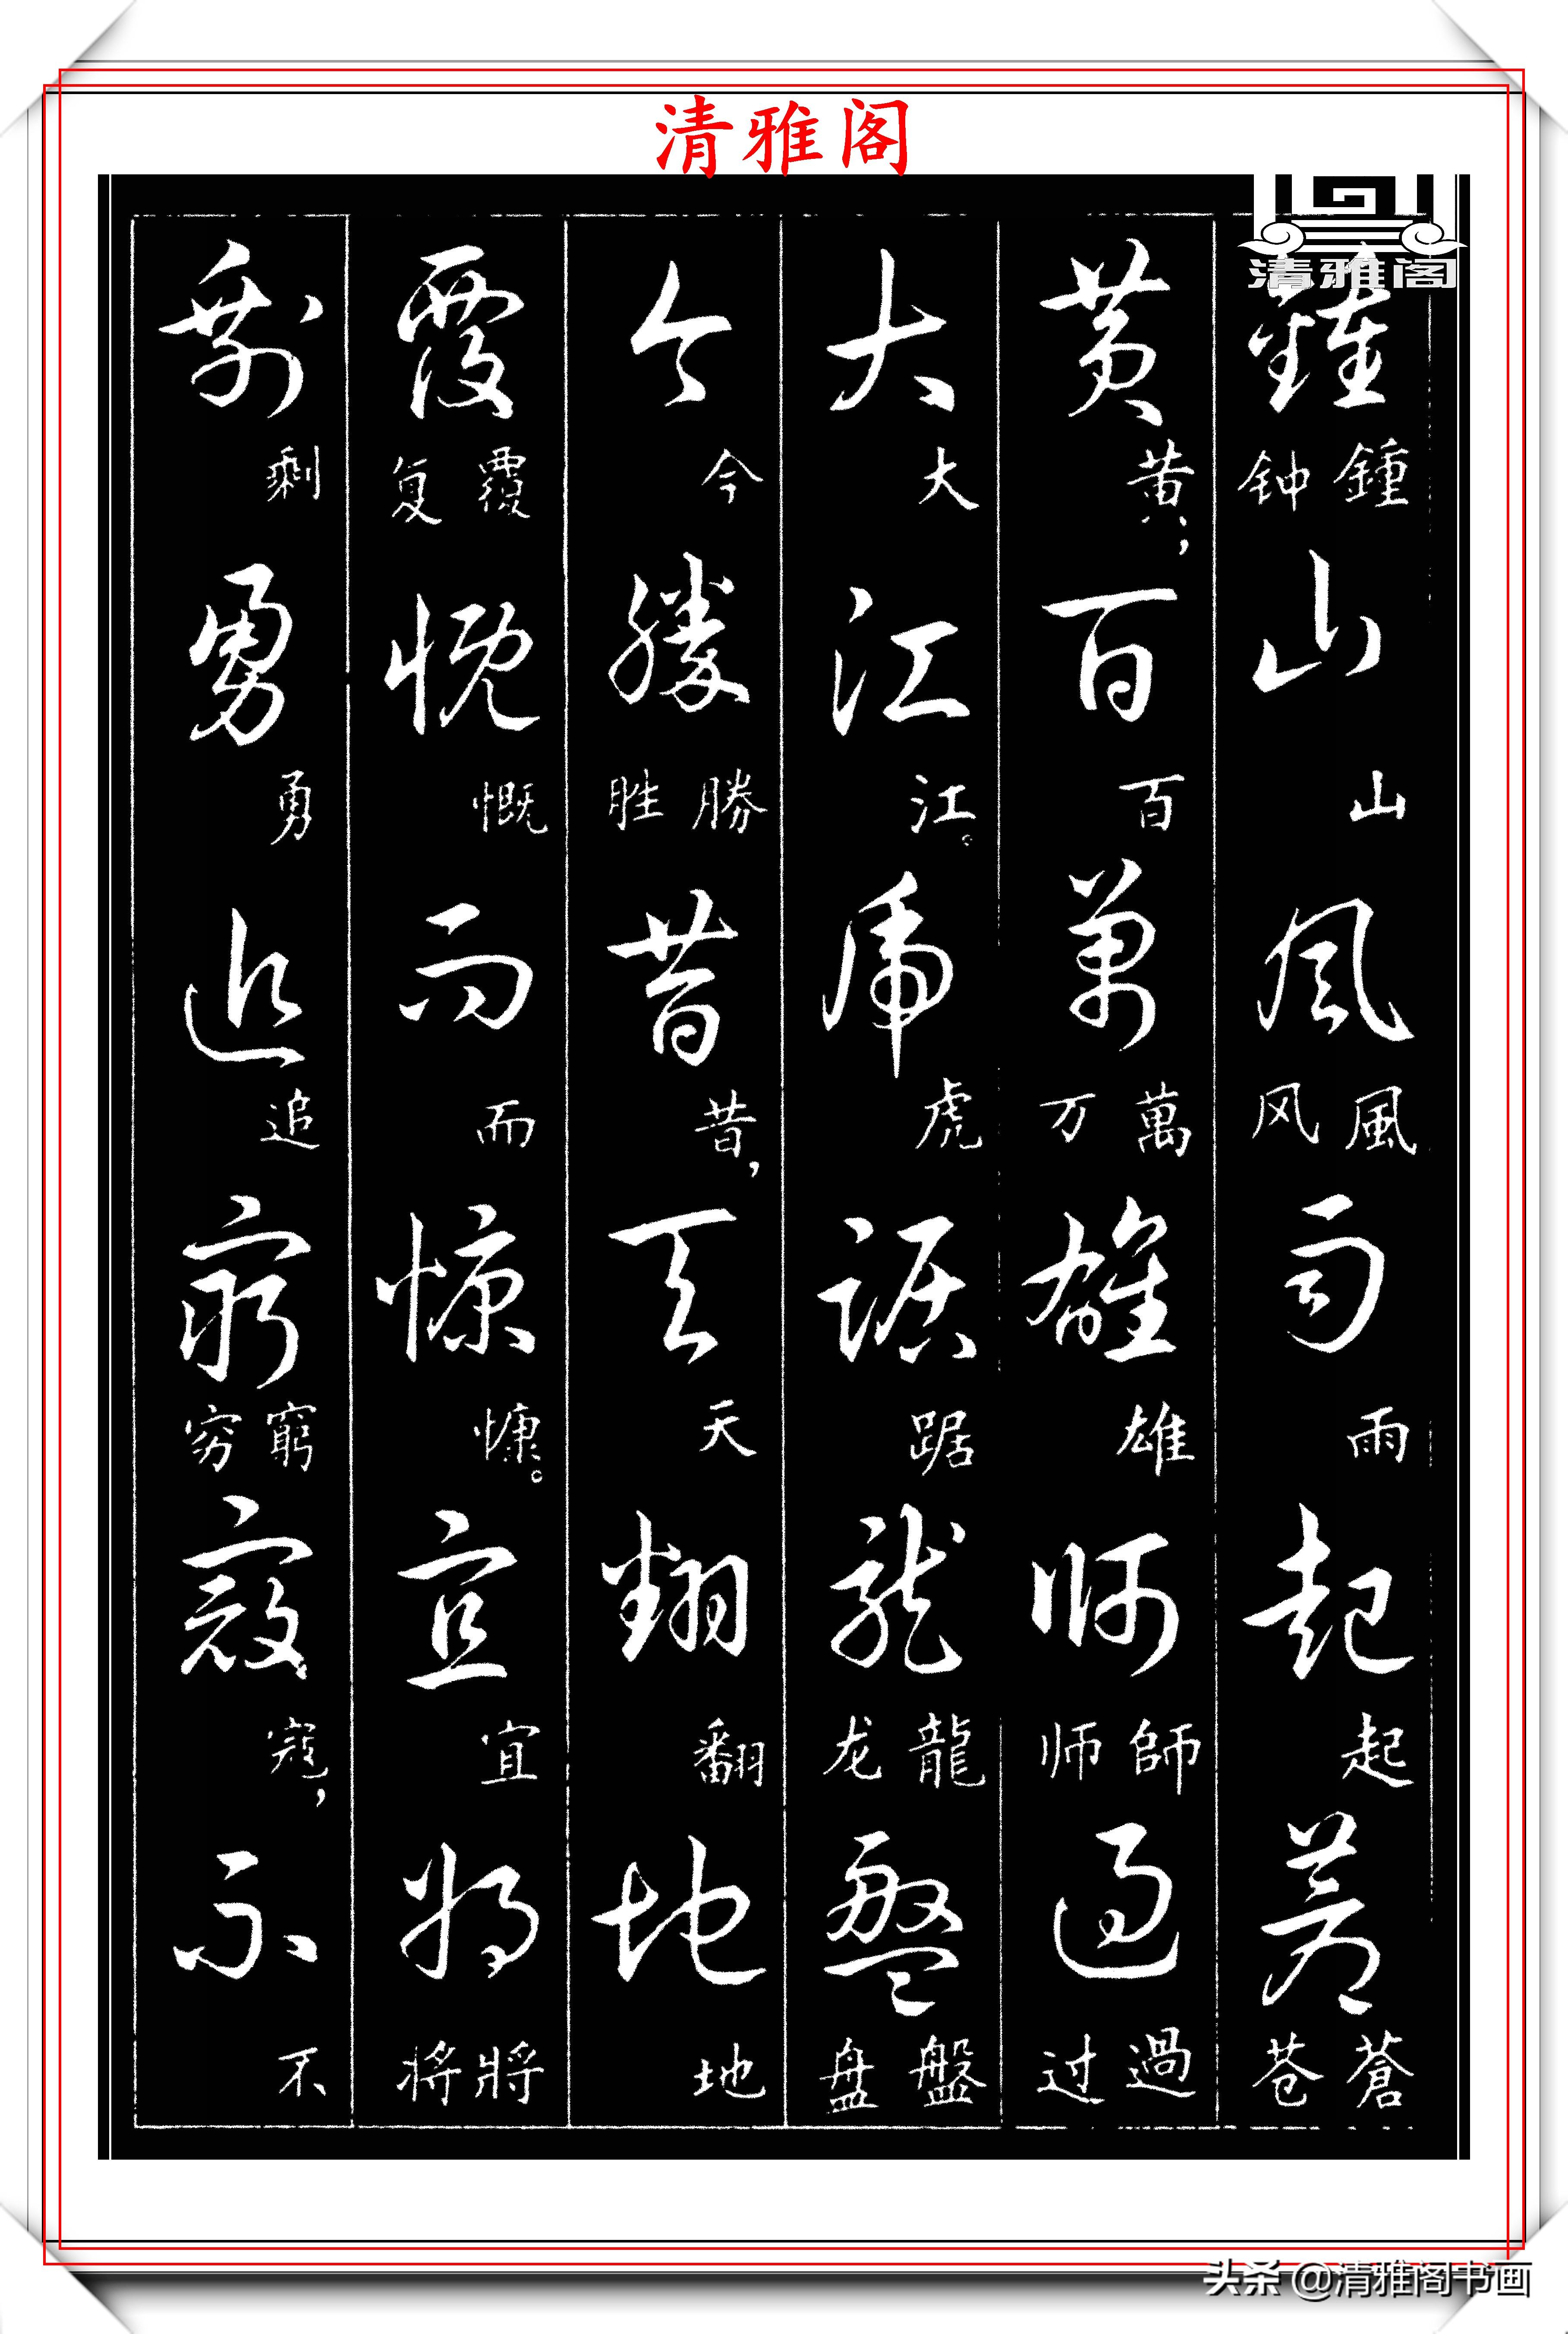 清雅阁
清雅阁
鍾 鍾 钟 山 山 風 風 风 雨 雨 起 起 蒼 蒼 苍
黄 黄； 百 百 萬 萬 万 雄 雄 師 師 师 過 過 过
大 大 江 江。 虎 虎 踞 踞 龍 龍 龙 盤 盤 盘
今 今 勝 勝 胜 昔 昔， 天 天 翻 翻 地 地
覆 覆 复 慨 慨 而 而 慷 慷。 宜 宜 將 將 将
剩 剩 勇 勇 追 追 窮 窮 穷 寇 寇， 不 不
头条 @清雅阁书画